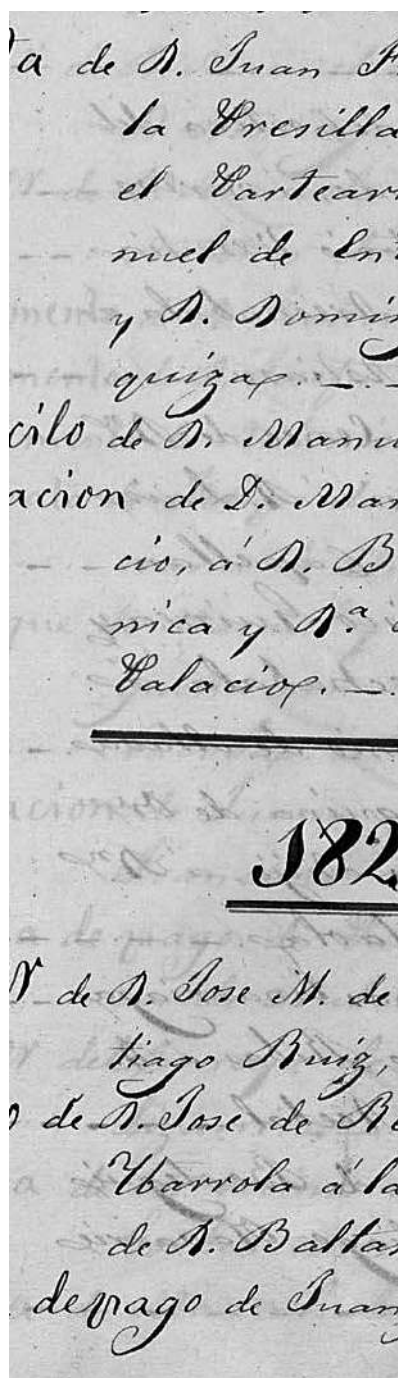 ta de D. Juan F
la Presilla
el Partear
nuel de En
y D. Domin
quiza. _ . _
cilo de D. Manu
acion de D. Mar
cio, á D. B
nica y D.ª
Palacio. _ .
182
de D. Jose M. de
tiago Ruiz,
o de D. Jose de
Ybarrola á la
de D. Baltas
de pago de Juan